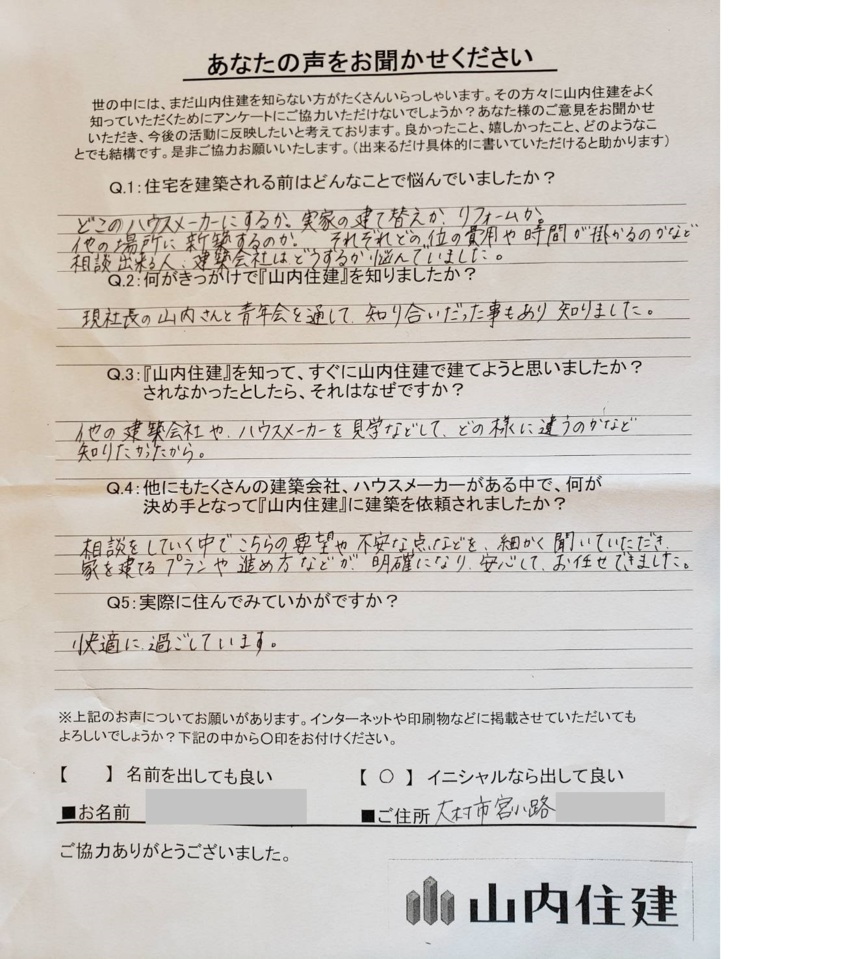 あなたの声をお聞かせください
世の中には、まだ山内住建を知らない方がたくさんいらっしゃいます。その方々に山内住建をよく
知っていただくためにアンケートにご協力いただけないでしょうか？あなた様のご意見をお聞かせ
いただき、今後の活動に反映したいと考えております。良かったこと、嬉しかったこと、どのようなこ
とでも結構です。是非ご協力お願いいたします。（出来るだけ具体的に書いていただけると助かります）
Q.1：住宅を建築される前はどんなことで悩んでいましたか？
どこのハウスメーカーにするか、実家の建て替えか、リフォームか。
他の場所に新築するのか。 それぞれどの位の費用や時間が掛かるのかなど
相談出来る人、建築会社はどうするか悩んでいました。
Q.2：何がきっがけで『山内住建』を知りましたか？
現社長の山内さんと青年会を通して、知り合いだった事もあり知りました。
Q.3：『山内住建』を知って、すぐに山内住建で建てようと思いましたか？
されなかったとしたら、それはなぜですか？
他の建築会社や、ハウスメーカーを見学などして、どの様に違うのかなど
知りたかったから。
Q.4：他にもたくさんの建築会社、ハウスメーカーがある中で、何が
決め手となって『山内住建』に建築を依頼されましたか？
相談をしていく中でこちらの要望や不安な点などを、細かく聞いていただき、
家を建てるプランや進め方などが、明確になり、安心して、お任せできました。
Q5：実際に住んでみていかがですか？
快適に、過ごしています。
※上記のお声についてお願いがあります。インターネットや印刷物などに掲載させていただいても
よろしいでしょうか？下記の中から〇印をお付けください。
【　　】 名前を出しても良い 【 〇 】 イニシャルなら出して良い
■お名前 ■ご住所 大村市宮小路
ご協力ありがとうございました。
山内住建